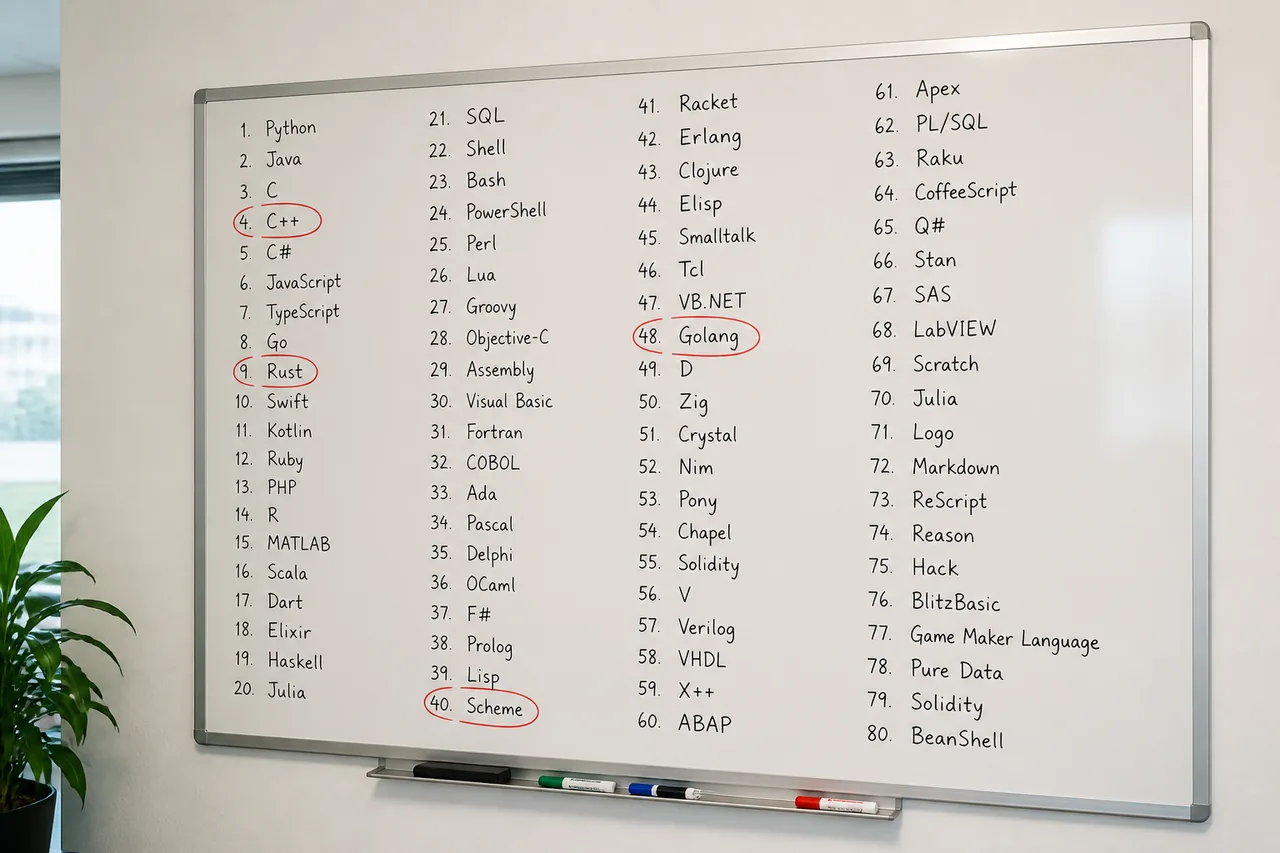 1. Python
2. Java
3. C
4. C++
5. C#
6. JavaScript
7. TypeScript
8. Go
9. Rust
10. Swift
11. Kotlin
12. Ruby
13. PHP
14. R
15. MATLAB
16. Scala
17. Dart
18. Elixir
19. Haskell
20. Julia
21. SQL
22. Shell
23. Bash
24. PowerShell
25. Perl
26. Lua
27. Groovy
28. Objective-C
29. Assembly
30. Visual Basic
31. Fortran
32. COBOL
33. Ada
34. Pascal
35. Delphi
36. OCaml
37. F#
38. Prolog
39. Lisp
40. Scheme
41. Racket
42. Erlang
43. Clojure
44. Elisp
45. Smalltalk
46. Tcl
47. VB.NET
48. Golang
49. D
50. Zig
51. Crystal
52. Nim
53. Pony
54. Chapel
55. Solidity
56. V
57. Verilog
58. VHDL
59. X++
60. ABAP
61. Apex
62. PL/SQL
63. Raku
64. CoffeeScript
65. Q#
66. Stan
67. SAS
68. LabVIEW
69. Scratch
70. Julia
71. Logo
72. Markdown
73. ReScript
74. Reason
75. Hack
76. BlitzBasic
77. Game Maker Language
78. Pure Data
79. Solidity
80. BeanShell